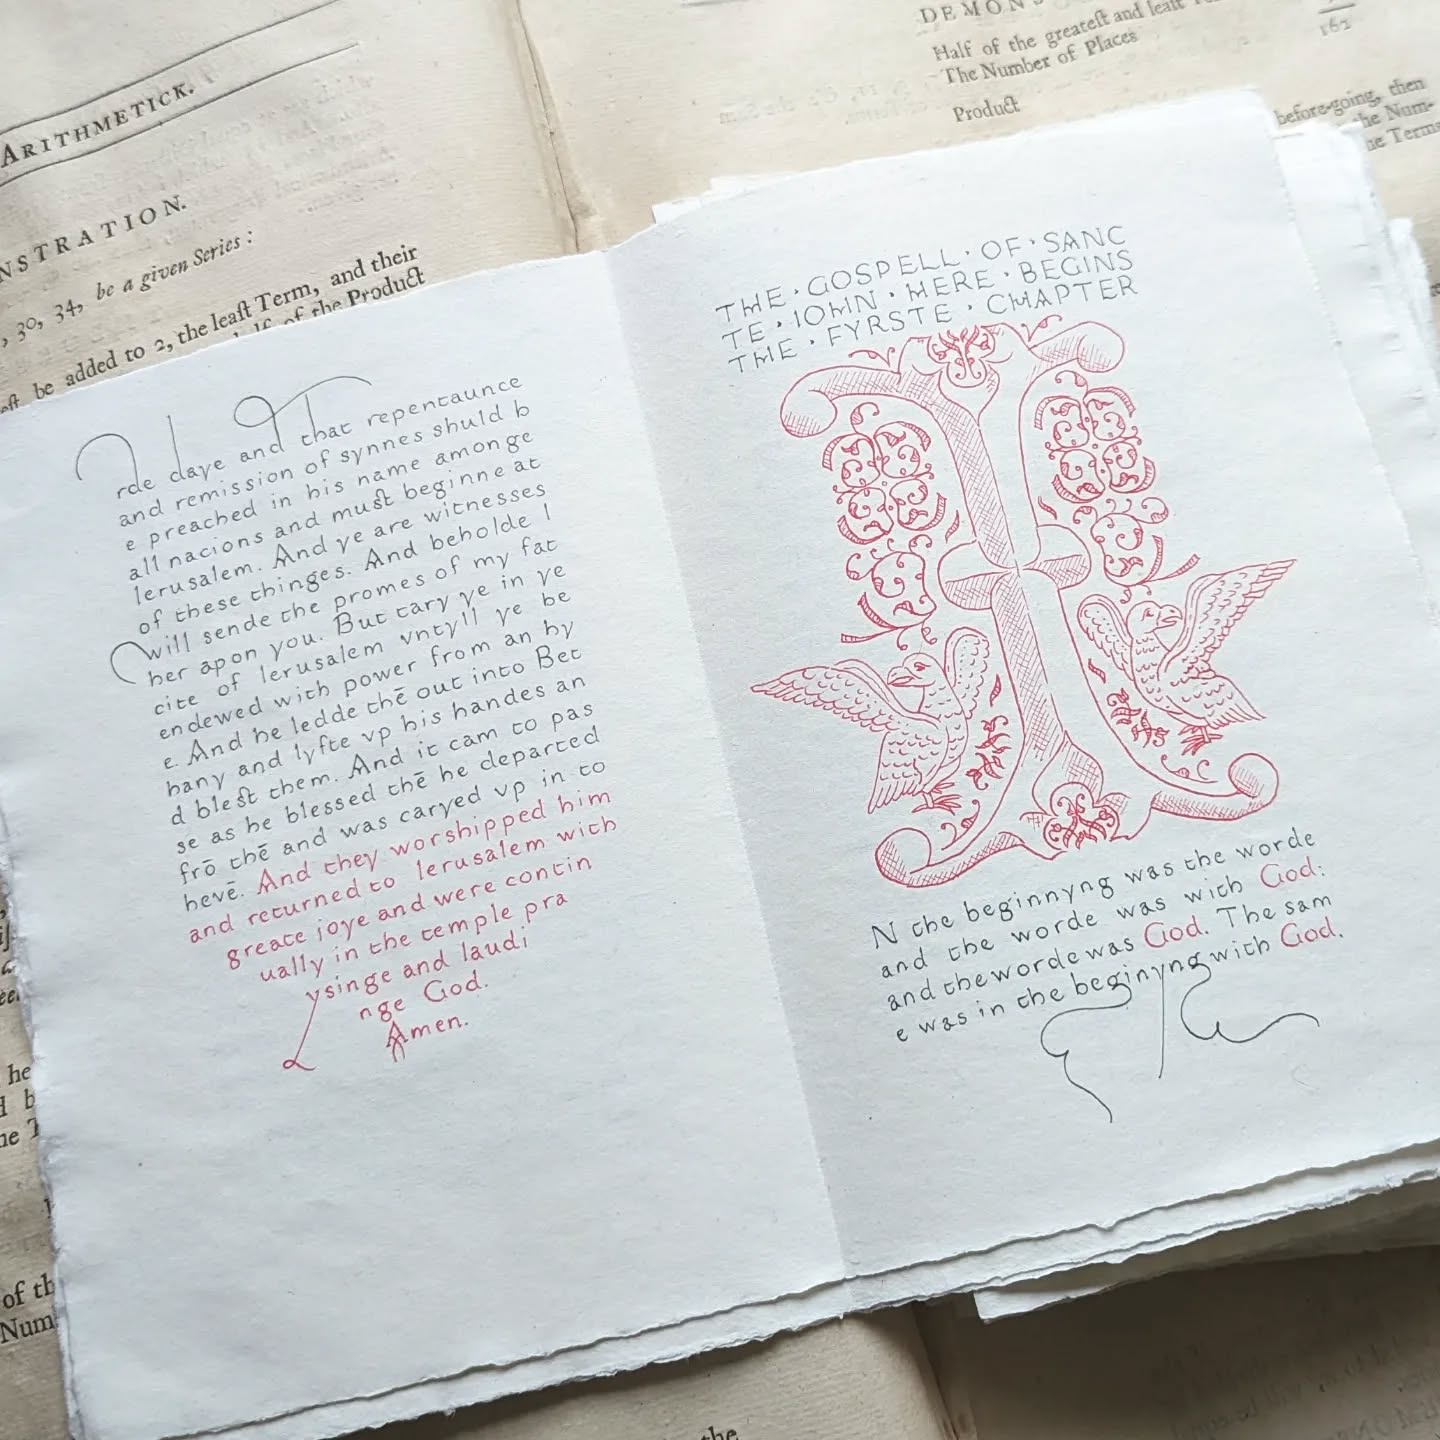 ARITHMETICK.
NSTRATION.
, 30, 34, be a given Series :
be added to 2, the leaſt Term, and their
of the Product
DEMON
Half of the greateſt and leaſt
The Number of Places
Product
162
before-going, then
the Num-
he Terms
rde daye and that repentaunce
and remission of synnes shuld b
e preached in his name amonge
all nacions and must beginne at
Ierusalem. And ye are witnesses
of these thinges. And beholde I
will sende the promes of my fat
her apon you. But tary ye in ye
cite of Ierusalem vntyll ye be
endewed with power from an hy
e. And he ledde thē out into Bet
hany and lyfte vp his handes an
d blest them. And it cam to pas
se as he blessed thē he departed
frō thē and was caryed vp in to
hevē. And they worshipped him
and returned to Ierusalem with
greate joye and were contin
ually in the temple pra
ysinge and laudi
nge God.
Amen.
THE · GOSPELL · OF · SANC
TE · IOHN · HERE · BEGINS
THE · FYRSTE · CHAPTER
I
N the beginnyng was the worde
and the worde was with God:
and the worde was God. The sam
e was in the beginyng with God.
he
of th
Num
the